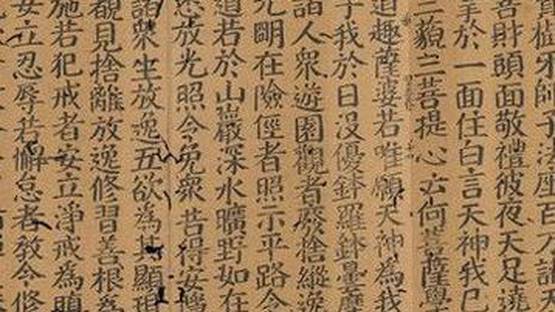 師子法座百万諸天
善財頭面敬禮彼夜天足遶
於一面住白言天神我已
三藐三菩提心云何菩薩學
道趣薩婆若唯願天神為我
子我於日没優鉢羅鉢曇摩
諸人衆遊園觀者廢捨縱逸
光明在險徑者照示平路令
道若於山巖深水曠野如在
悉放光照令免衆苦得安隱
諸衆生放逸五欲為其顯現
覩見捨離放逸修習善根為
施若犯戒者安立淨戒為瞋
安立忍辱若懈怠者教令修